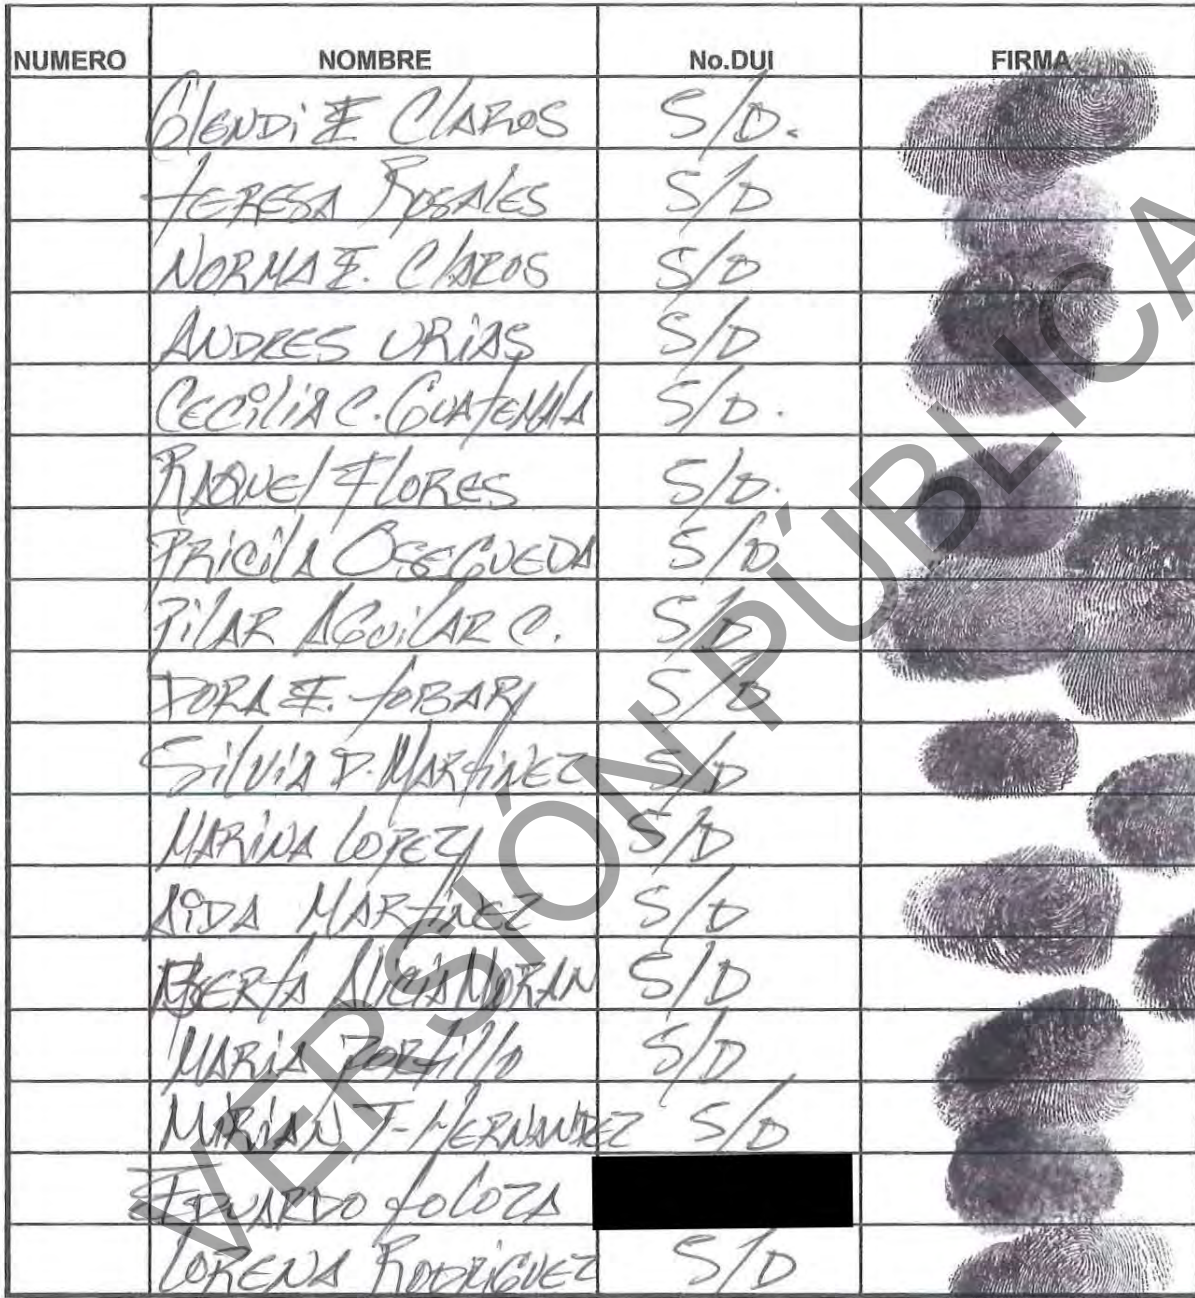 NUMERO NOMBRE No.DUI FIRMA
GlENDi E ClAROS S/D.
tERESA ROSAlES S/D
NORMA E. ClAROS S/D
ANDRES URiAS S/D
CECiliA C. GUAtEMAlA S/D.
RAQUEl FlORES S/D.
PRiCilA OSEGUEDA S/D
PilAR AGUilAR C. S/D
DORA E. tOBAR S/D
SilViA D. MARtiNEZ S/D
MARiNA lOPEZ S/D
AiDA MARtiNEZ S/D
BERtA AliCiA MORAN S/D
MARiA PORtillO S/D
MiRiAN J- HERNANDEZ S/D
EDUARDO tOlOZA
lORENA RODRiGUEZ S/D
VERSIÓN PÚBLICA